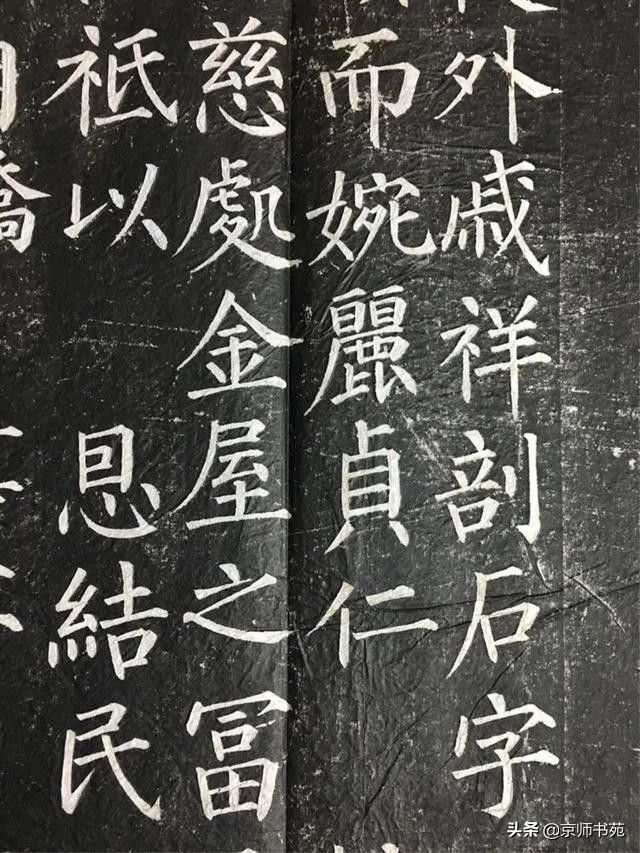 外戚祥剖石字
而婉麗貞仁
慈處金屋之冨
祗以恩結民
頭条@京师书苑